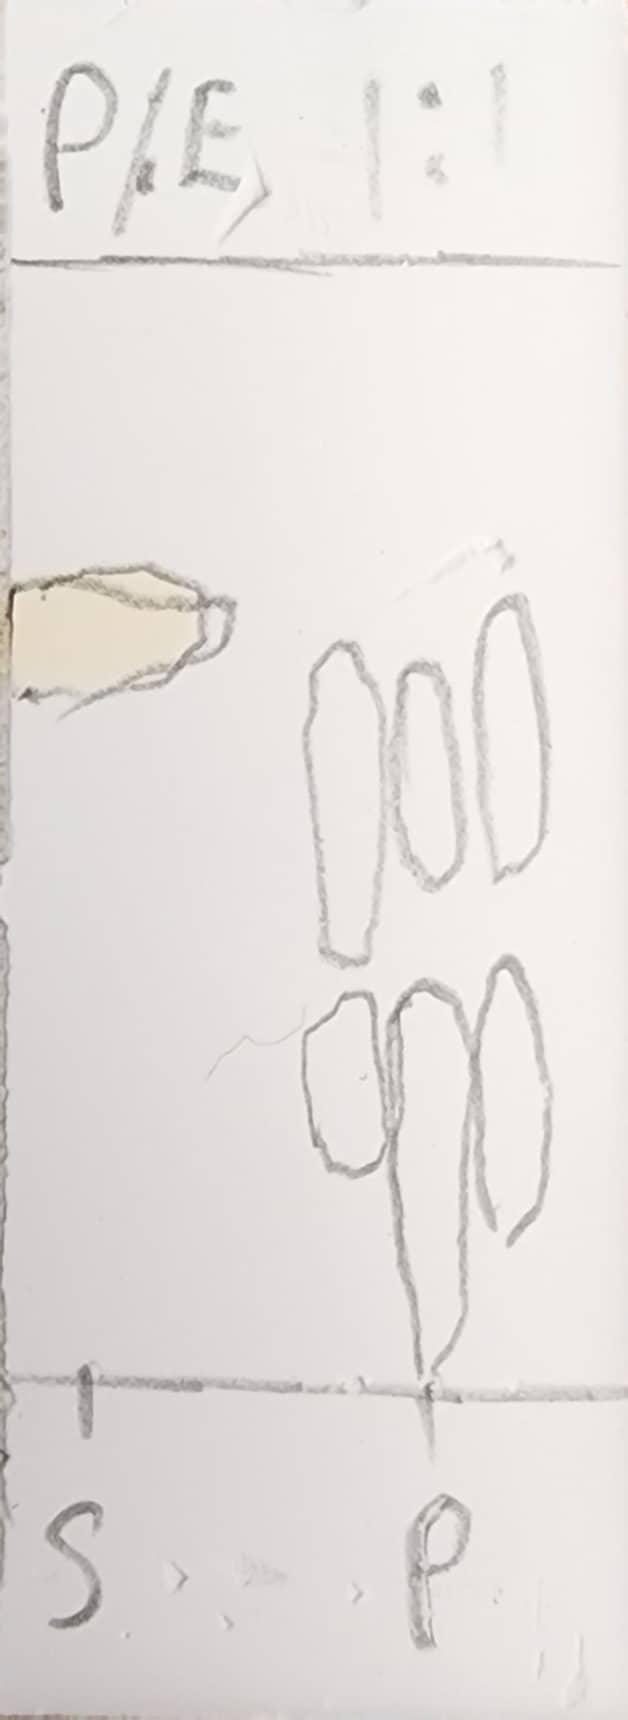 P/E 1:1
S P